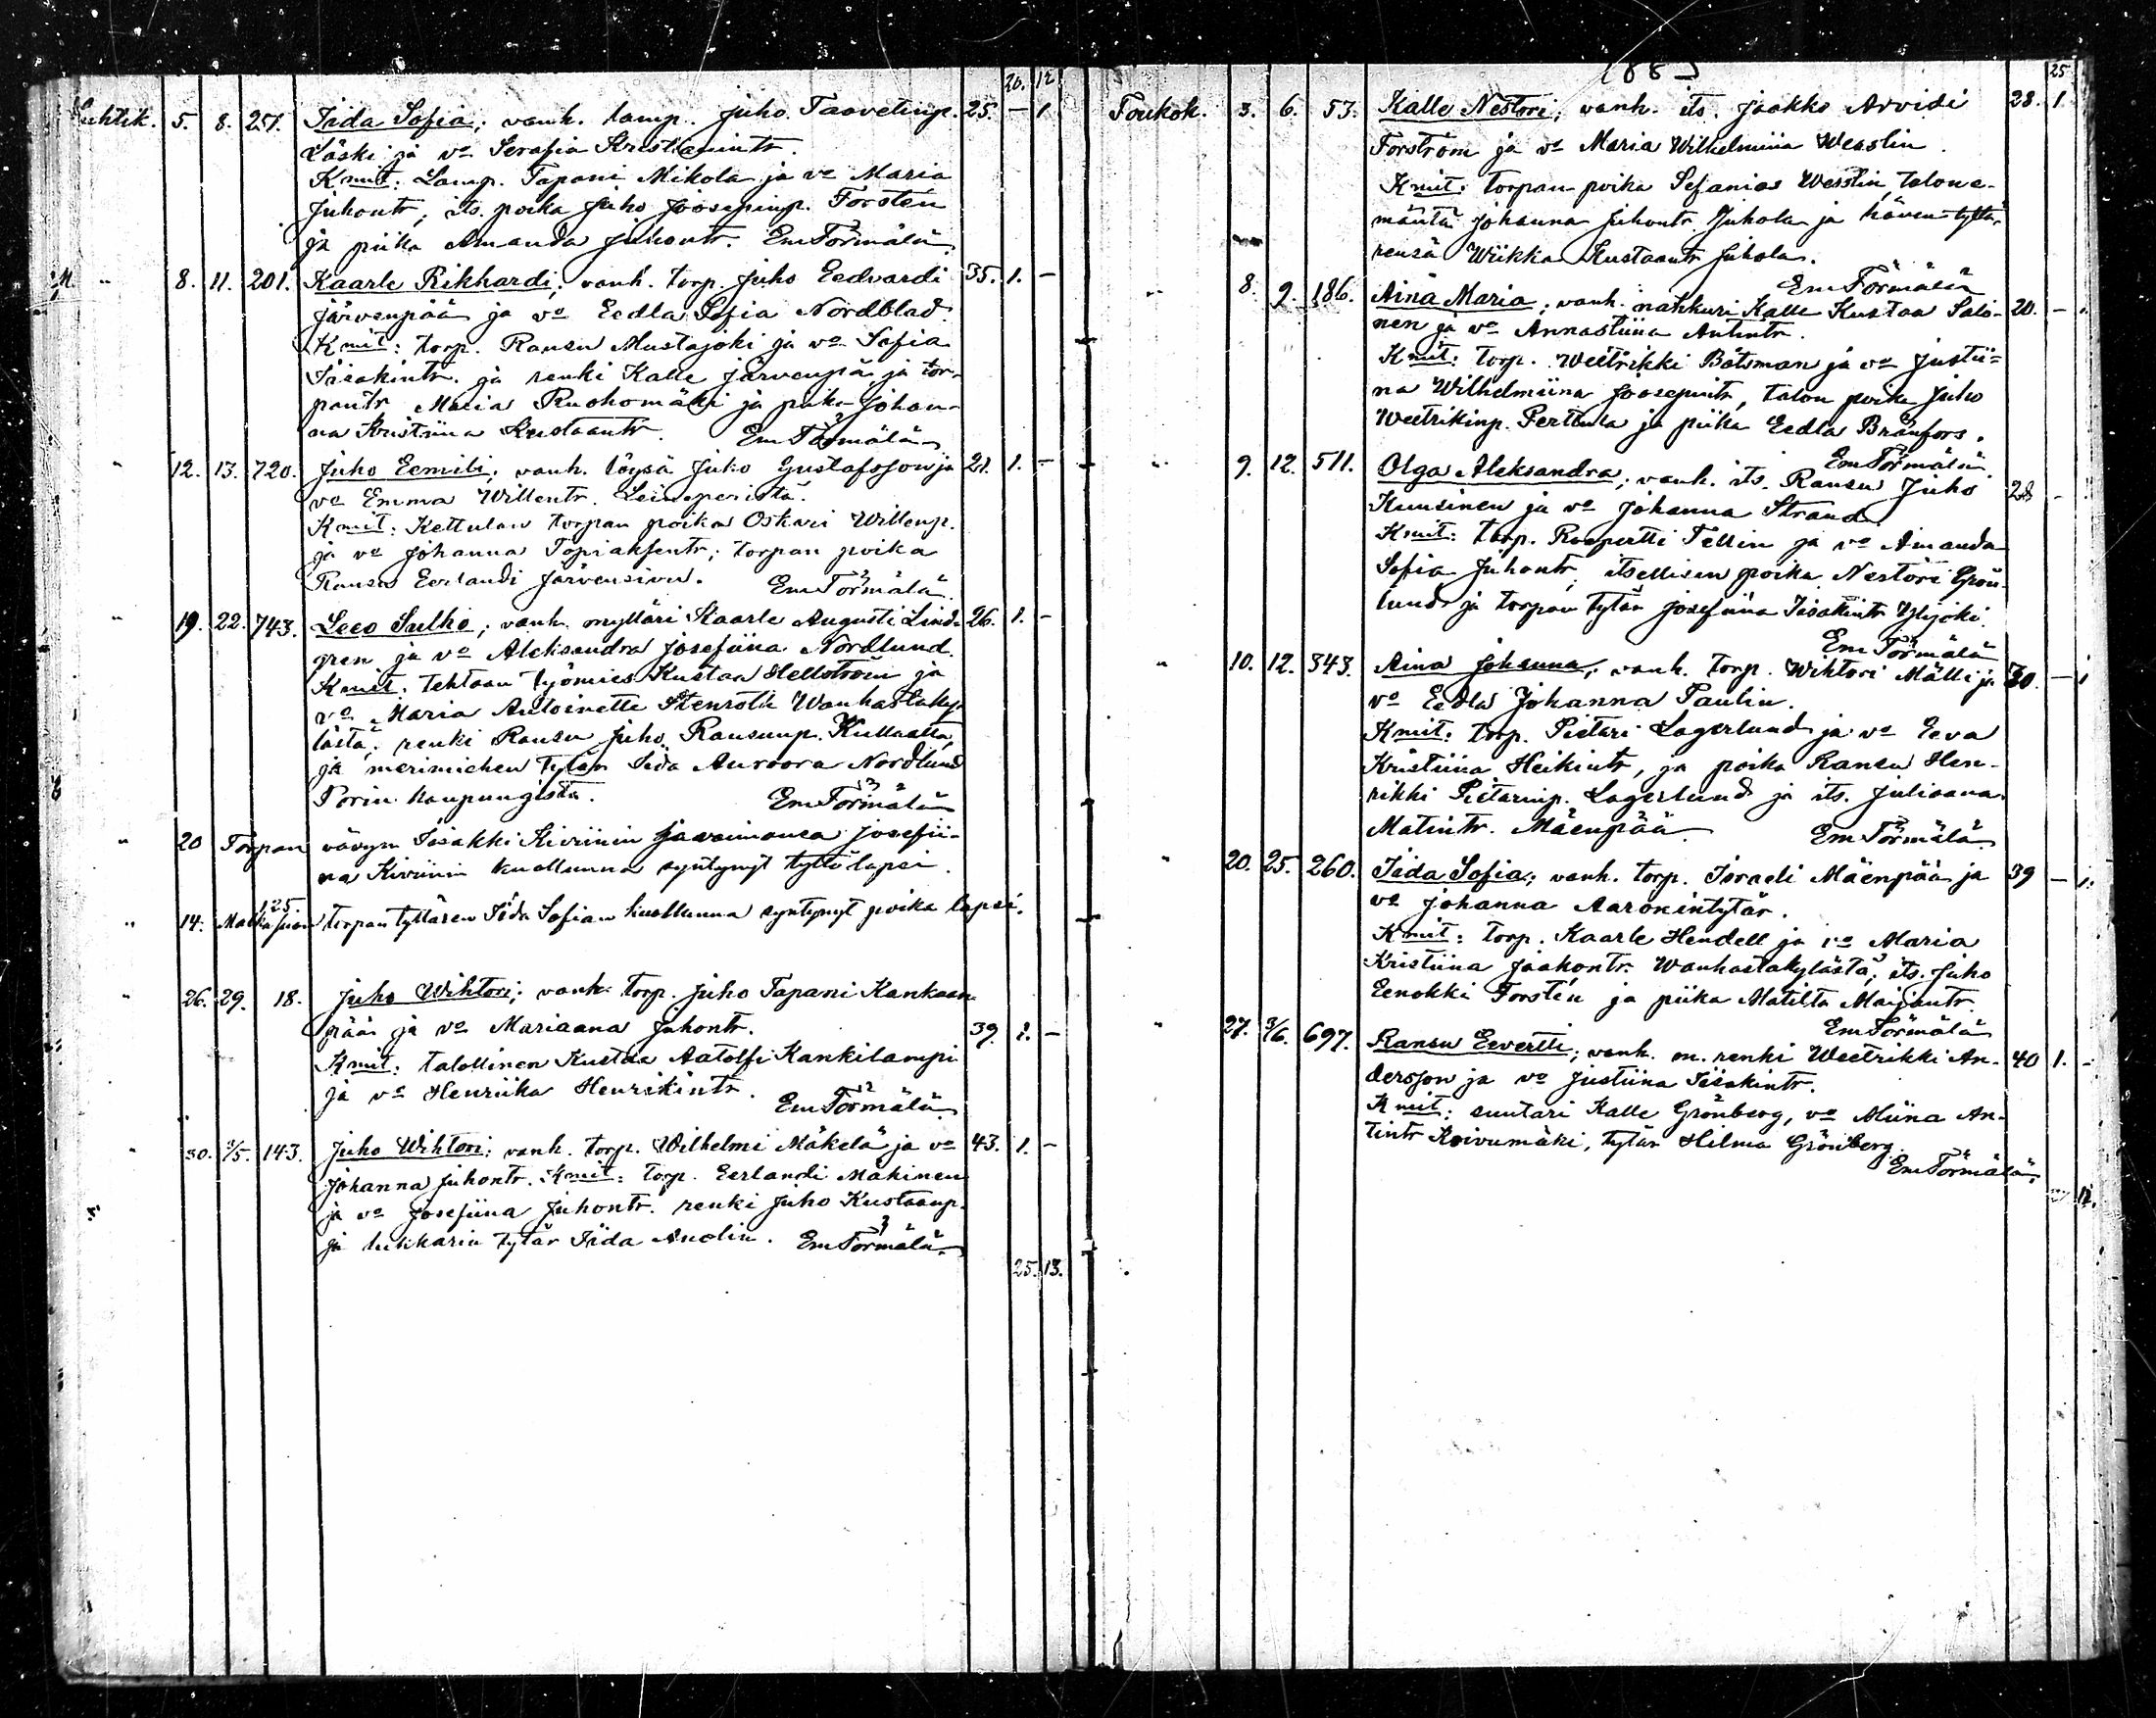 20. 12
Huhtik. 5. 8. 251. Iida Sofia; vanh. lamp. Juho Taavetinp. 25. - 1
Läski ja vo Serafia Kristianintr.
Kmit: Lamp. Tapani Mikola ja vo Maria
Juhontr, its. poika Juho Joosepinp. Forstén
ja piika Amanda Juhontr. Em Törmälä
" 8. 11. 201. Kaarle Rikhardi; vanh. torp. Juho Eedvardi 35. 1. -
Järvenpää ja vo Eedla Sofia Nordblad.
Kmit: torp. Ransu Mustajoki ja vo Sofia
Iisakintr. ja renki Kalle Järvenpää ja tor-
pantr Maria Ruohomäki ja piika Johan-
na Kristiina Kustaantr. Em Törmälä
" 12. 13. 720. Juho Eemili; vanh. löysä Juho Gustafsson ja 21. 1. -
vo Emma Willentr. Leineperistä.
Kmit: Kettulan torpan poika Oskari Willenp.
ja vo Johanna Topiaksentr; torpan poika
Ransu Eerlandi Järvensivu. Em Törmälä.
19. 22. 743. Leeo Sulho; vanh. mylläri Kaarle Augusti Lind- 26. 1. -
gren ja vo Aleksandra Josefiina Nordlund.
Kmit: tehtaan työmies Kustaa Hellström ja
vo Maria Antoinette Stenroth Wanhastaky-
lästä, renki Ransu Juho Ransunp. Kullaalta,
ja merimiehen tytär Iida Auroora Nordlund
Porin kaupungista. Em Törmälä
" 20 Torpan vävyn Iisakki Kiviinin ja vaimonsa Josefii-
na Kiviinin kuolluuna syntynyt tyttö lapsi.
125
" 14. torpan tyttären Iida Sofian kuolluuna syntynyt poika lapsi.
" 26. 29. 18. Juho Wihtori; vanh. torp. Juho Tapani Kankaan-
pää ja vo Mariaana Juhontr. 39. 1. -
Kmit: talollinen Kustaa Aatolfi Kankilampi
ja vo Henriika Henrikintr. Em Törmälä
" 30. 3/5. 143. Juho Wihtori; vanh. torp. Wilhelmi Mäkelä ja vo 43. 1. -
Johanna Juhontr. Kmit: torp. Eerlandi Mäkinen
ja vo Josefiina Juhontr. renki Juho Kustaanp.
ja lukkarin tytär Iida Anolin. Em Törmälä
25. 13.
1887
25
Toukok. 3. 6. 53. Kalle Nestori; vanh. its. Jaakko Arvidi 28. 1
Forström ja vo Maria Wilhelmiina Wesslin.
Kmit: torpan poika Sefanias Wesslin, talone-
mäntä Johanna Juhontr. Juhola ja hänen tyttä-
rensä Wiikka Kustaantr Juhola.
Em Törmälä
" 8. 9. 186. Aina Maria; vanh. nahkuri Kalle Kustaa Salo- 20. - 1.
nen ja vo Annastiina Antintr.
Kmit: torp. Weetrikki Båtsman ja vo Justii-
na Wilhelmiina Joosepintr, talon poika Juho
Weetrikinp. Perttula ja piika Eedla Brånfors.
Em Törmälä
" 9. 12. 511. Olga Aleksandra; vanh. its. Ransu Juho 28 -
Kuusinen ja vo Johanna Strand.
Kmit: torp. Roopertti Tellin ja vo Amanda
Sofia Juhontr, itsellisen poika Nestori Grön-
lund ja torpan tytär Josefiina Iisakintr Ylijoki.
Em Törmälä
" 10. 12. 343. Aina Johanna; vanh. torp. Wihtori Mälli ja 30. - 1
vo Eedla Johanna Paulin.
Kmit: torp. Pietari Lagerlund ja vo Eeva
Kristiina Heikintr, ja poika Ransu Hen-
rikki Pietarinp. Lagerlund ja its. Juliaana
Matintr. Mäenpää Em Törmälä
" 20. 25. 260. Iida Sofia; vanh. torp. Israeli Mäenpää ja 39 - 1.
vo Johanna Aaronintytär.
Kmit: torp. Kaarle Hendell ja vo Maria
Kristiina Jaakontr. Wanhastakylästä, its. Juho
Eenokki Forstén ja piika Matilta Maijantr.
Em Törmälä
" 27. 3/6. 697. Ransu Eevertti; vanh. m. renki Weetrikki An- 40 1. -
dersson ja vo Justiina Iisakintr.
Kmit: suutari Kalle Grönberg, vo Miina An-
tintr Koivumäki, tytär Hilma Grönberg.
Em Törmälä.